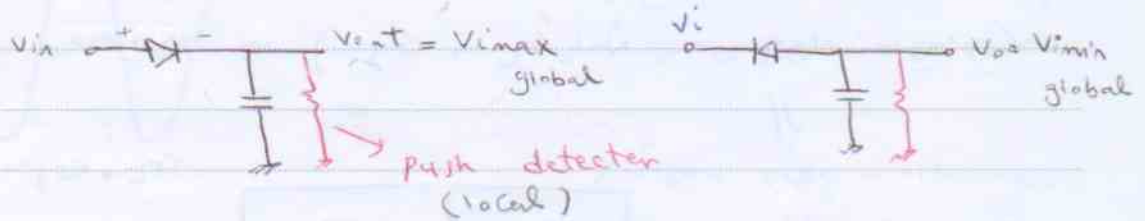 Vin + - Vout = Vimax
global
push detecter
(local)
Vi
Vo = Vimin
global